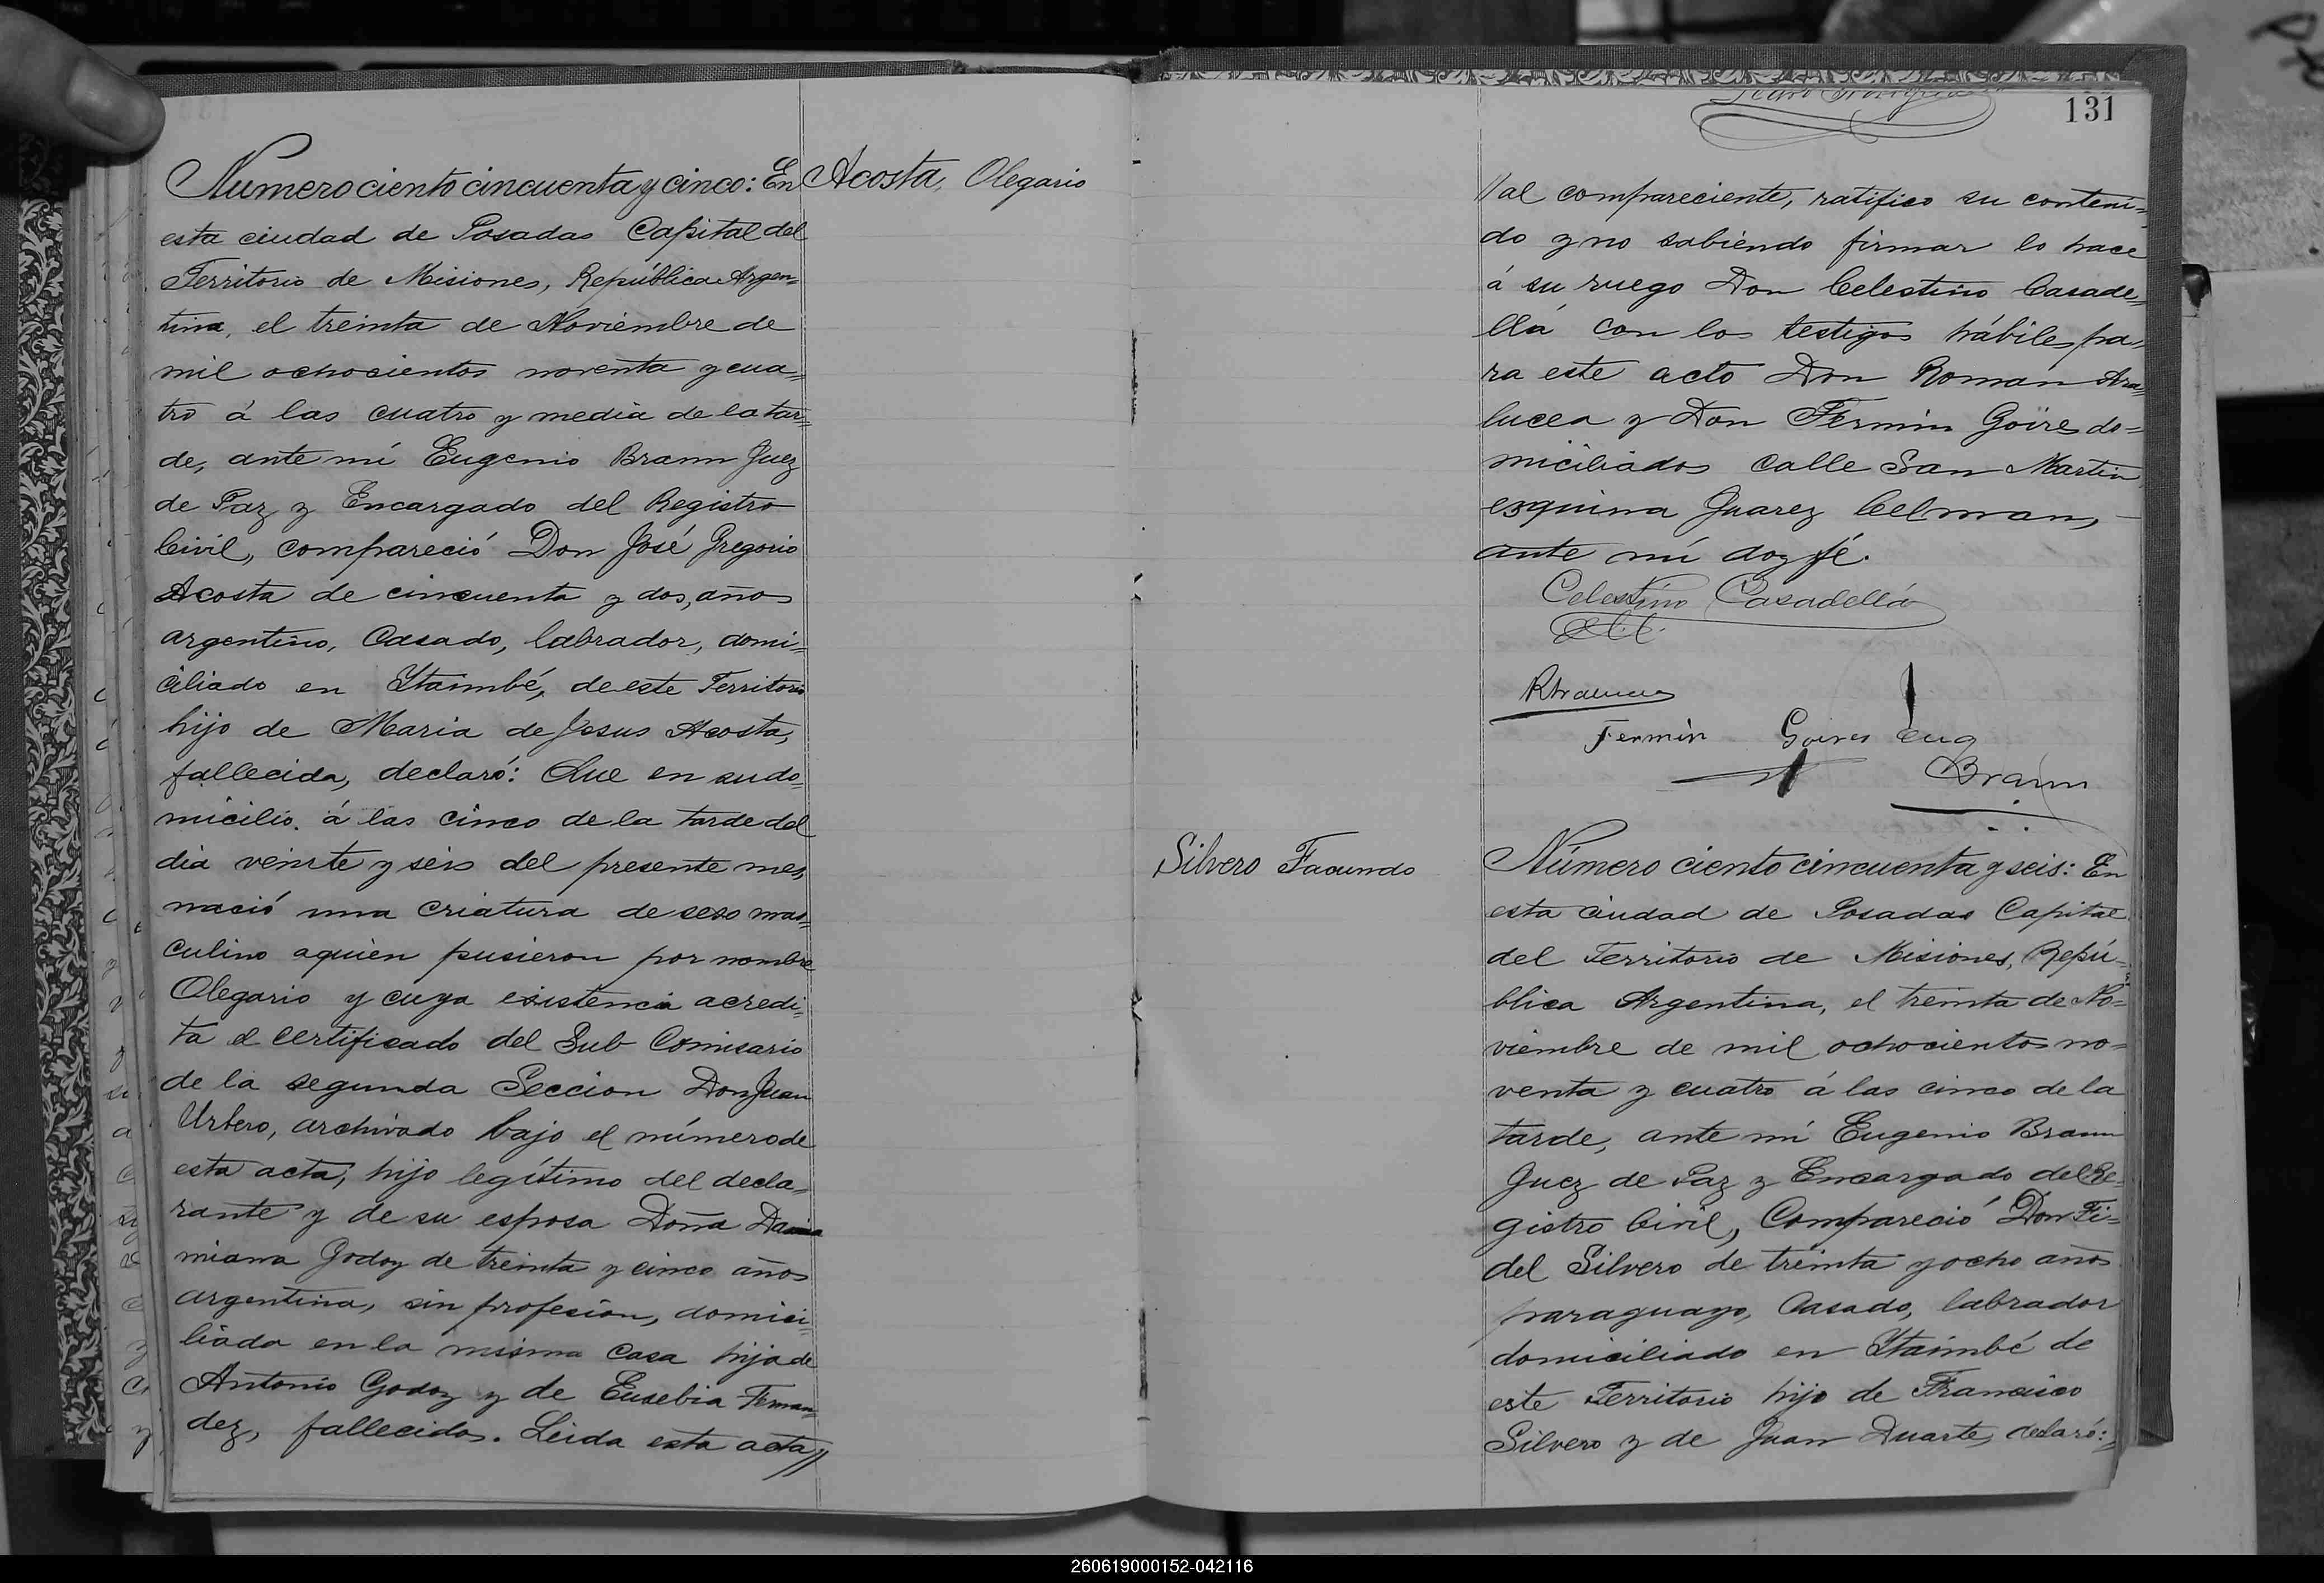 Numero ciento cincuenta y cinco: En
esta ciudad de Posadas Capital del
Territorio de Misiones, República Argen=
tina, el treinta de Noviembre de
mil ochocientos noventa y cua=
tro á las cuatro y media de la tar=
de, ante mí Eugenio Braun Juez
de Paz y Encargado del Registro
Civil, compareció Don José Gregorio
Acosta de cincuenta y dos, años
argentino, Casado, labrador, domi=
ciliado en Ytaimbé, de este Territorio
hijo de Maria de Jesus Acosta,
fallecida, declaró: Que en su do=
micilio. á las cinco de la tarde del
dia veinte y seis del presente mes,
nació una criatura de sexo mas=
culino aquien pusieron por nombre
Olegario y cuya existencia acredi=
ta el certificado del Sub Comisario
de la segunda Seccion Don Juan
Urbero, archivado bajo el número de
esta acta, hijo legítimo del decla=
rante y de su esposa Doña
miana Godoy de treinta y cinco años
argentina, sin profesion, domici=
liada en la misma casa hija de
Antonio Godoy y de Eusebia Fernan=
dez, fallecidos. Leida esta acta//
Acosta, Olegario
131
//al compareciente, ratifico su conteni=
do y no sabiendo firmar lo hace
á su ruego Don Celestino Casade=
llá con los testigos hábiles pa=
ra este acto Don Roman Ara=
lucea y Don Fermin Goires do=
miciliados calle San Martin
esquina Juarez Celman,
ante mí doy fé.
Celestino Casadellá
Fermin Goires Eug
Braun
Silvero Facundo
Número ciento cincuenta y seis: En
esta ciudad de Posadas Capital
del Territorio de Misiones, Repú=
blica Argentina, el treinta de No=
viembre de mil ochocientos no=
venta y cuatro á las cinco de la
tarde, ante mí Eugenio Braun
Juez de Paz y Encargado del Re=
gistro Civil, Compareció Don Fi=
del Silvero de treinta y ocho años
paraguayo, Casado, labrador
domiciliado en Ytaimbé de
este Territorio hijo de Francisco
Silvero y de Juan Duarte, declaró:
260619000152-042116